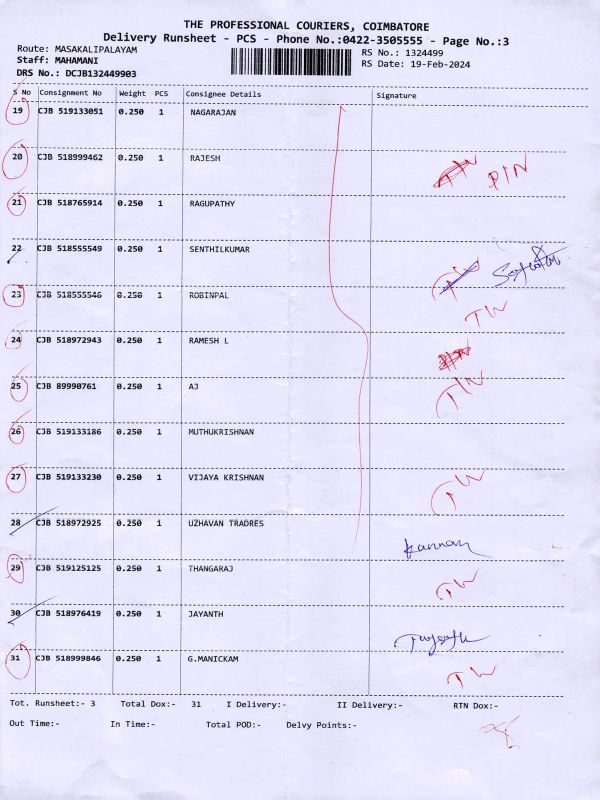 THE PROFESSIONAL COURIERS, COIMBATORE
Delivery Runsheet - PCS - Phone No.:0422-3505555 - Page No.:3
Route: MASAKALIPALAYAM RS No.: 1324499
Staff: MAHAMANI RS Date: 19-Feb-2024
DRS No.: DCJB132449903
S No Consignment No Weight PCS Consignee Details Signature
19 CJB 519133051 0.250 1 NAGARAJAN
20 CJB 518999462 0.250 1 RAJESH PIN
21 CJB 518765914 0.250 1 RAGUPATHY
22 CJB 518555549 0.250 1 SENTHILKUMAR
23 CJB 518555546 0.250 1 ROBINPAL
24 CJB 518972943 0.250 1 RAMESH L
25 CJB 89990761 0.250 1 AJ
26 CJB 519133186 0.250 1 MUTHUKRISHNAN
27 CJB 519133230 0.250 1 VIJAYA KRISHNAN
28 CJB 518972925 0.250 1 UZHAVAN TRADRES
Kannan
29 CJB 519125125 0.250 1 THANGARAJ
30 CJB 518976419 0.250 1 JAYANTH
31 CJB 518999846 0.250 1 G.MANICKAM
Tot. Runsheet:- 3 Total Dox:- 31 I Delivery:- II Delivery:- RTN Dox:-
Out Time:- In Time:- Total POD:- Delvy Points:-